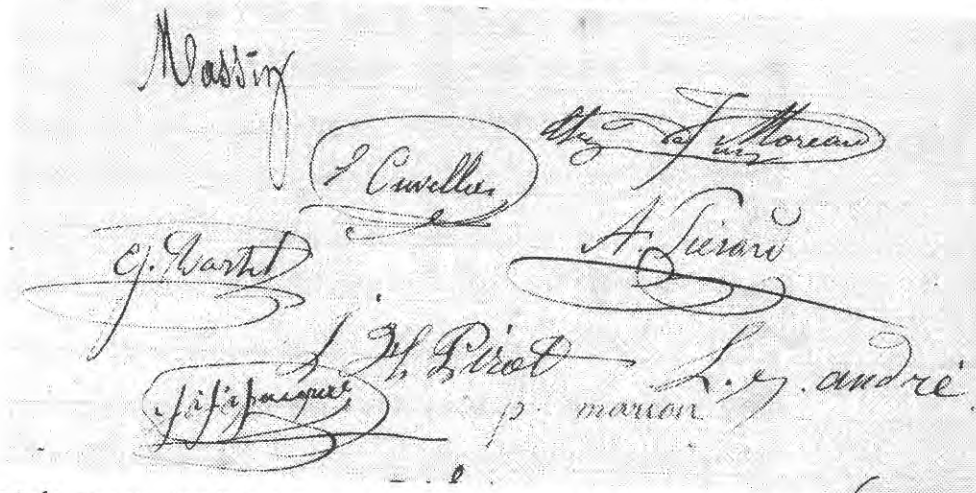 Massin
Moreau
J Cuvellier
A. Piérard
G. Martel
J. H. Pirot
L. J. andré
J. J. J. Jacques
p marion